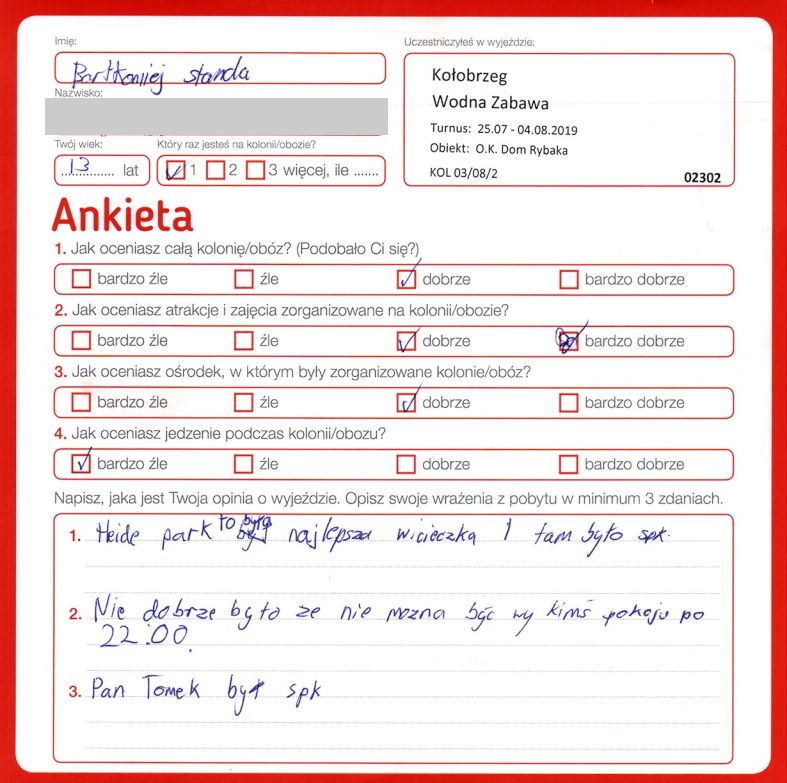 Imię:
Bartłomiej standa
Nazwisko:
Twój wiek:
13 lat
Który raz jesteś na kolonii/obozie?
1 2 3 więcej, ile .......
Uczestniczyłeś w wyjeździe:
Kołobrzeg
Wodna Zabawa
Turnus: 25.07 - 04.08.2019
Obiekt: O.K. Dom Rybaka
KOL 03/08/2
02302
Ankieta
1. Jak oceniasz całą kolonię/obóz? (Podobało Ci się?)
bardzo źle źle dobrze bardzo dobrze
2. Jak oceniasz atrakcje i zajęcia zorganizowane na kolonii/obozie?
bardzo źle źle dobrze bardzo dobrze
3. Jak oceniasz ośrodek, w którym były zorganizowane kolonie/obóz?
bardzo źle źle dobrze bardzo dobrze
4. Jak oceniasz jedzenie podczas kolonii/obozu?
bardzo źle źle dobrze bardzo dobrze
Napisz, jaka jest Twoja opinia o wyjeździe. Opisz swoje wrażenia z pobytu w minimum 3 zdaniach.
1. Heide park to była najlepsza wicieczka I tam było spk.
2. Nie dobrze było ze nie mozna być wy kimś pokoju po
22:00.
3. Pan Tomek był spk